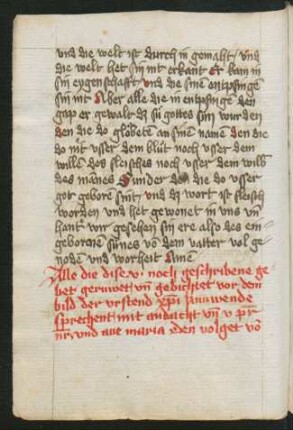 vnd die welt ist durch in gemaht / vnd
die welt het sin nit erkant Er kam in
sin eygenschafft vnd die sinē entpfingē
sin nit Aber alle die in entpfingē den
gap er gewalt dz sü gottes sün wurdēn
den die do globetē an sinē namē den die
do nit vsser dem blůt noch vsser dem
willē des fleisches noch vsser dem willē
des mānes Sunder die do vsser
got geborē sint / vnd dz wort ist fleisch
worden vnd het gewonet in vns vn̄
hant wir gesehen sin ere also des ein
gebornē sunes vō dem vatter vol ge
nodē vnd worheit Amē
Alle die dise noch geschribene ge
bet vn̄ gedichtet vor dem
bild der vrstend xp̄i
sprechent mit andacht vn̄ v pr̄
nr̄ vnd aue maria den volget vō